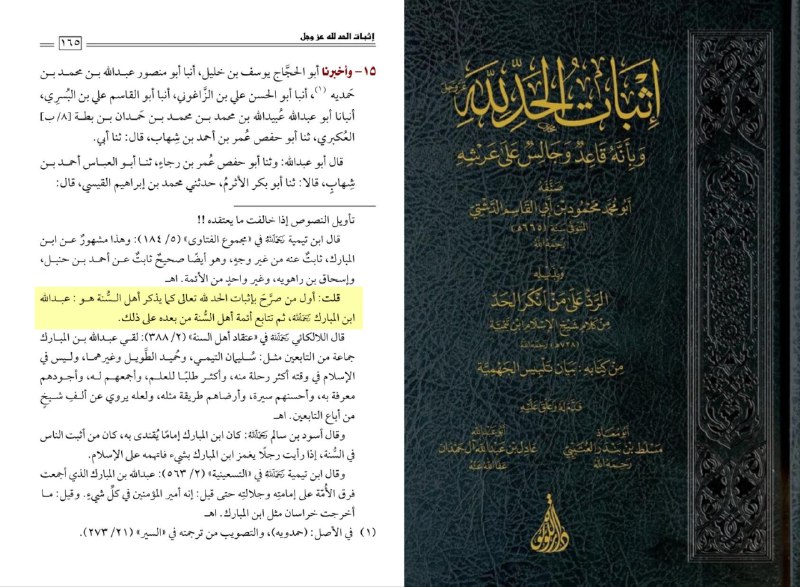 إثبات الحد لله عز وجل
١٦٥
١٥- وأخبرنا أبو الحجَّاج يوسف بن خليل، أنبا أبو منصور عبدالله بن محمد بن
حَمديه (١)، أنبا أبو الحسن علي بن الزَّاغوني، أنبا أبو القاسم علي بن البُسري،
أنبانا أبو عبدالله عُبيدالله بن محمد بن محمد بن حَمدان بن بطة [٨/ ب]
العُكبري، ثنا أبو حفص عُمر بن أحمد بن شِهاب، قال: ثنا أبي.
قال أبو عبدالله: وثنا أبو حفص عُمر بن رجاءٍ، ثنا أبو العباس أحمد بن
شِهابٍ، قالا: ثنا أبو بكر الأثرمُ، حدثني محمد بن إبراهيم القيسي، قال:
تأويل النصوص إذا خالفت ما يعتقده !!
قال ابن تيمية رَحِمَهُ اللهُ في «مجموع الفتاوى» (٥/ ١٨٤): وهذا مشهورٌ عن ابن
المبارك، ثابتٌ عنه من غير وجهٍ، وهو أيضًا صحيحٌ ثابتٌ عن أحمد بن حنبل،
وإسحاق بن راهويه، وغير واحدٍ من الأئمة. اهـ
قلت: أول من صرَّح بإثبات الحد لله تعالى كما يذكر أهل السُّنة هو : عبدالله
ابن المبارك رَحِمَهُ اللهُ، ثم تتابع أئمة أهل السُّنة من بعده على ذلك.
قال اللالكائي رَحِمَهُ اللهُ في «عتقاد أهل السنة» (٢/ ٣٨٨): لقي عبدالله بن المبارك
جماعة من التابعين مثل: سُليمان التيمي، وحُميد الطَّويل وغيرهما، وليس في
الإسلام في وقته أكثر رحلة منه، وأكثر طلبًا للعلم، وأجمعهم له، وأجودهم
معرفة به، وأحسنهم سيرة، وأرضاهم طريقة مثله، ولعله يروي عن ألفِ شيخٍ
من أتباع التابعين. اهـ
وقال أسود بن سالم رَحِمَهُ اللهُ: كان ابن المبارك إمامًا يُقتدى به، كان من أثبت الناس
في السُّنة، إذا رأيت رجلًا يغمز ابن المبارك بشيء فاتهمه على الإسلام.
وقال ابن تيمية رَحِمَهُ اللهُ في «التسعينية» (٢/ ٥٦٣): عبدالله بن المبارك الذي أجمعت
فرق الأُمَّة على إمامتِه وجلالتِه حتى قيل: إنه أمير المؤمنين في كلِّ شيءٍ. وقيل: ما
أخرجت خراسان مثل ابن المبارك. اهـ
(١) في الأصل: (حمدويه)، والتصويب من ترجمته في «السير» (٢١/ ٢٧٣).
إثبات الحد لله عز وجل
وبأنه قاعد وجالس على عرشه
صنفه
أبو محمد محمود بن أبي القاسم الدشتي
المتوفى سنة (٦٦٥هـ)
رحمه الله
ويليه
الرد على من أنكر الحد
من كلام شيخ الإسلام ابن تيمية
(٧٢٨هـ) رحمه الله
من كتابه: بيان تلبيس الجهمية
قدم له وعلق عليه
أبو معاذ
مسلط بن بندر العتيبي
رحمه الله
أبو عبدالله
عادل بن عبدالله آل حمدان
عفا الله عنه
دار اللؤلؤة